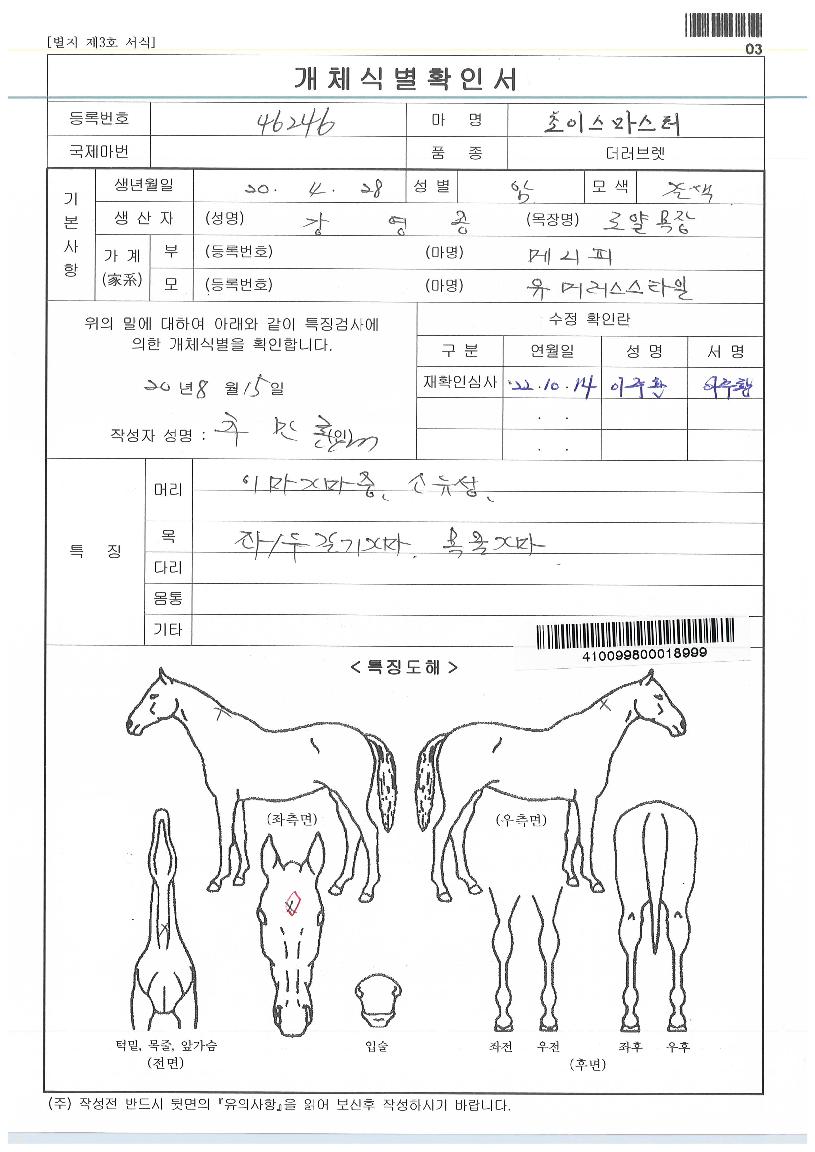 [별지 제3호 서식]
03
개체식별확인서
등록번호 46246 마 명 초이스마스터
국제마번 품 종 더러브렛
기본사항
생년월일 20. 4. 28 성별 암 모색 갈색
생산자 (성명) 강 영 종 (목장명) 로얄목장
가계 (家系)
부 (등록번호) (마명) 메니피
모 (등록번호) (마명) 유머러스스타일
위의 말에 대하여 아래와 같이 특징검사에
의한 개체식별을 확인합니다.
20년 8월 15일
작성자 성명 : (인)
수정 확인란
구 분 연월일 성 명 서 명
재확인심사 '22.10.14 이주환 이주환
. .
. .
특 징
머리 이마지마중, 소유성,
목 좌/우 갈기지마, 목울지마
다리
몸통
기타
410099800018999
<특징도해>
(좌측면) (우측면)
턱밑, 목줄, 앞가슴 입술 좌전 우전 좌후 우후
(전면) (후면)
(주) 작성전 반드시 뒷면의 『유의사항』을 읽어 보신후 작성하시기 바랍니다.